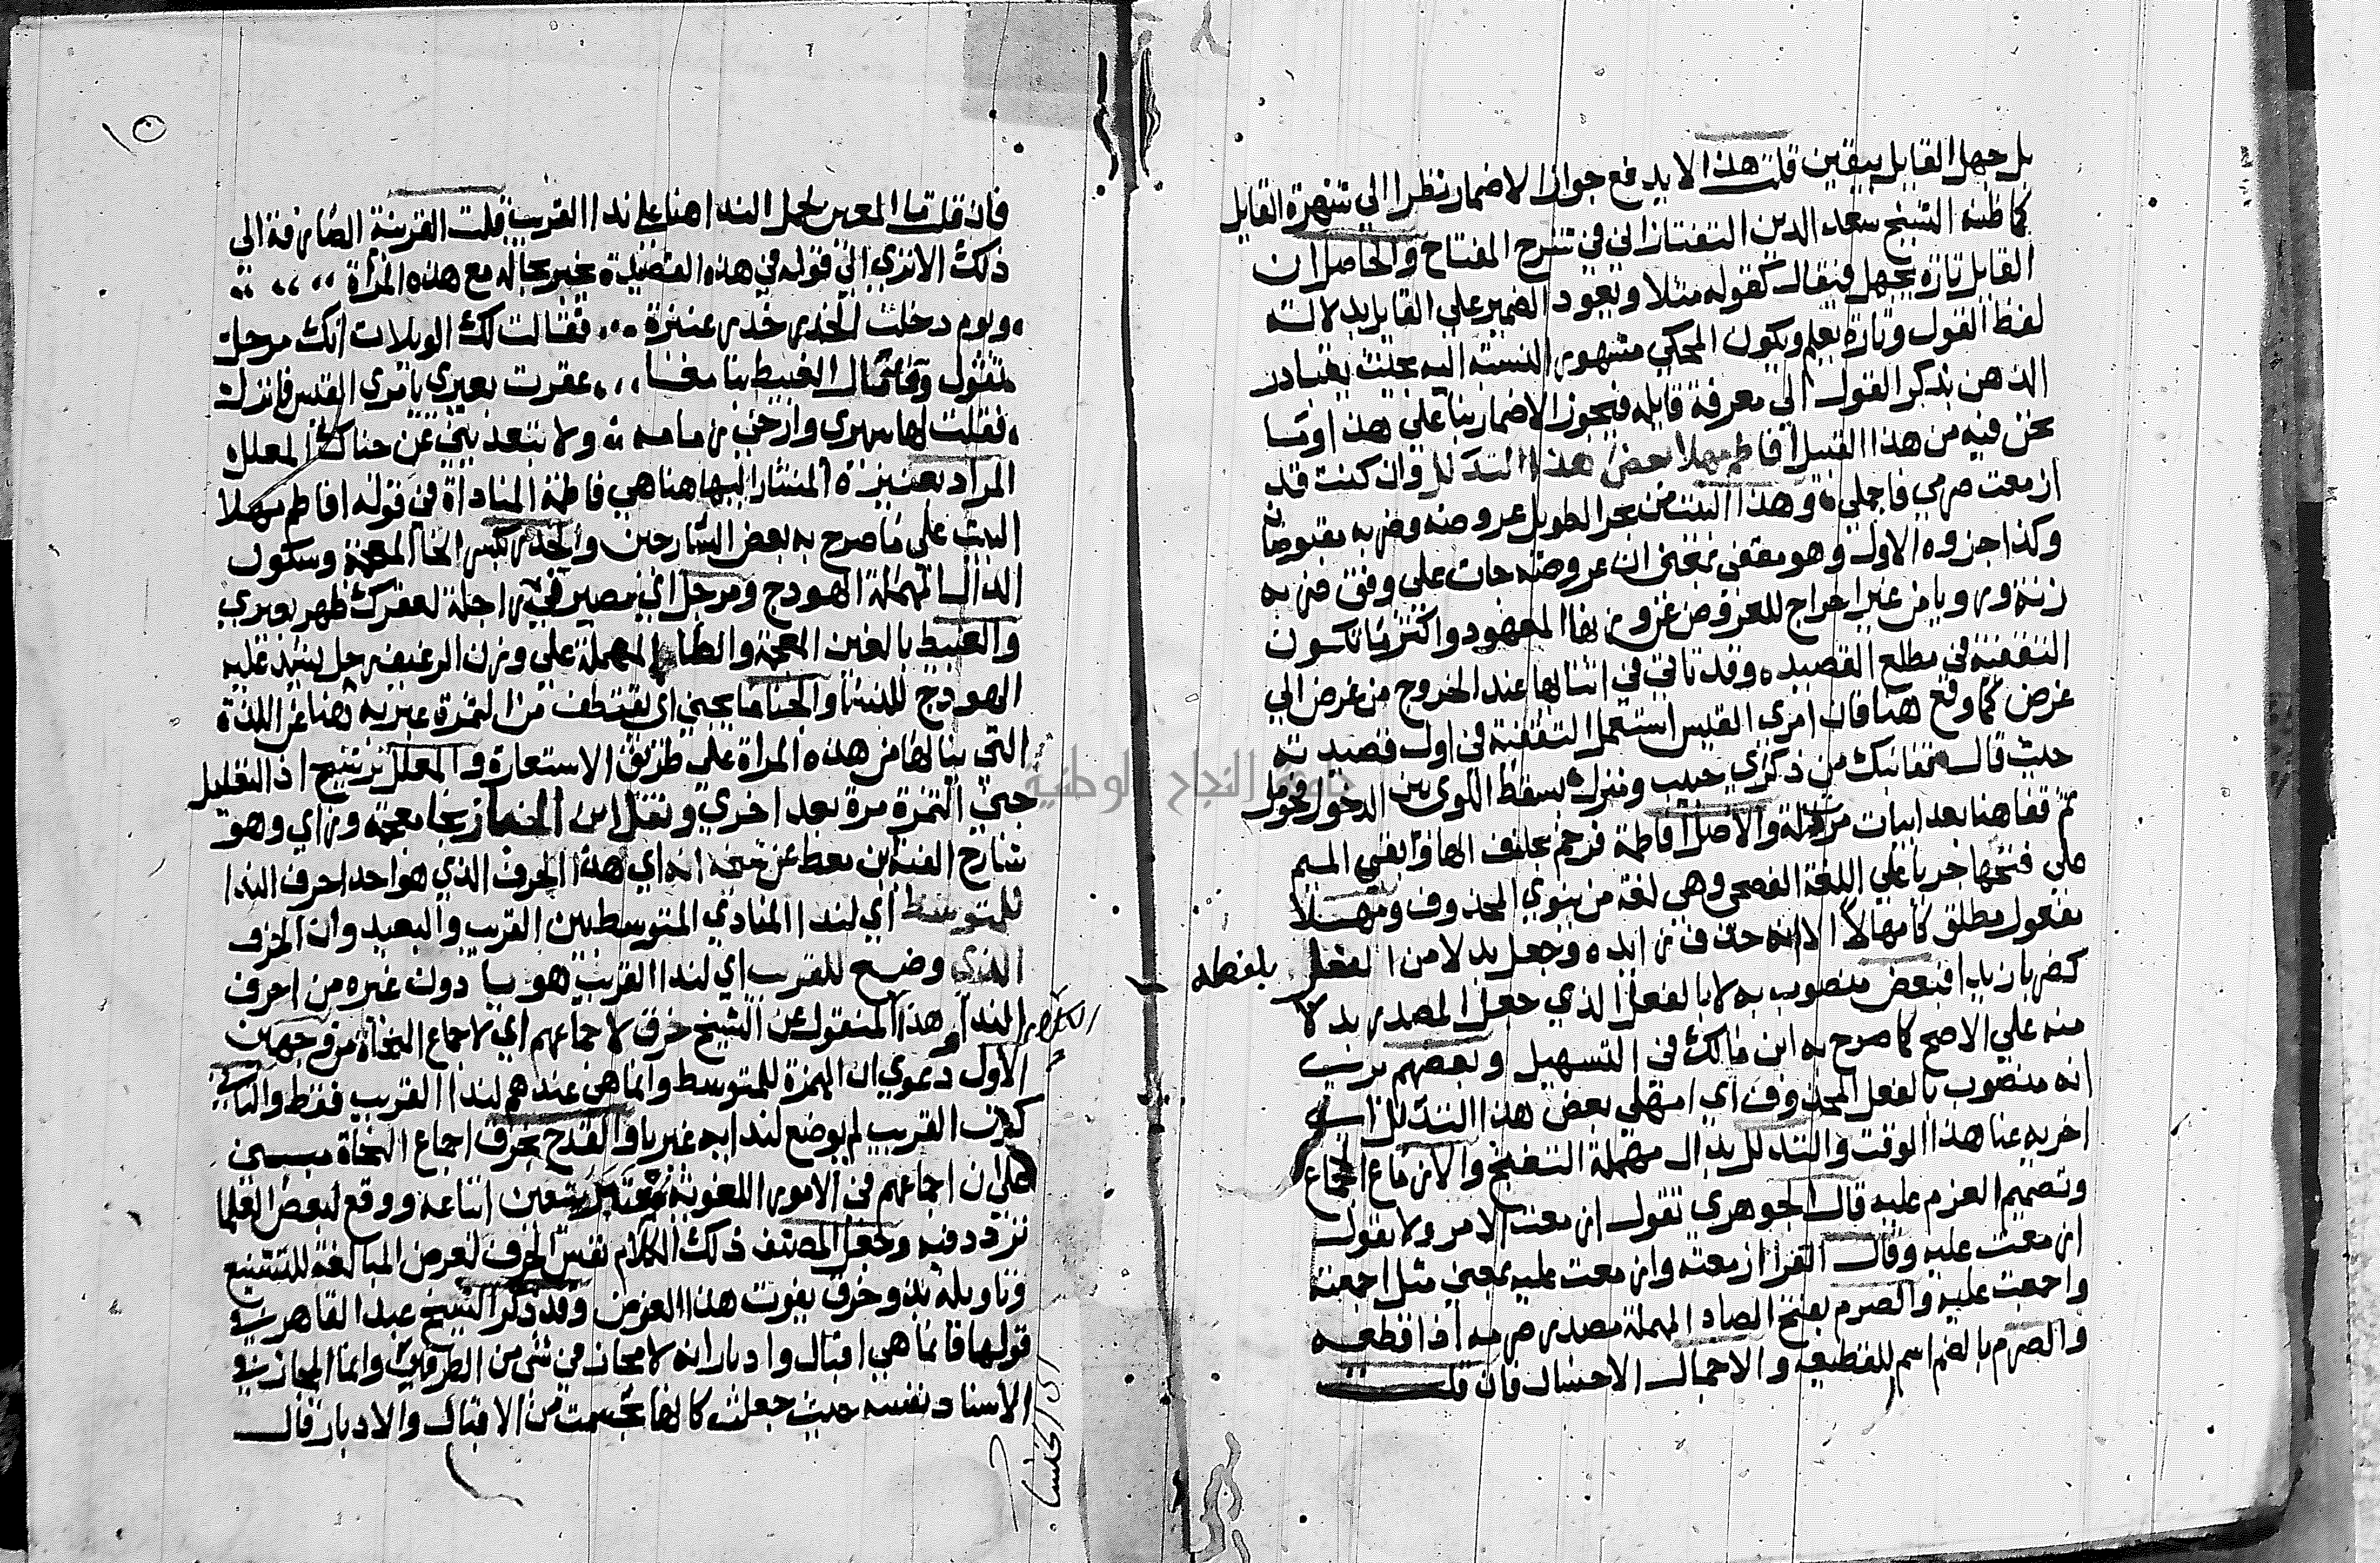 بل جهل القايل بيقين قلت هذا لا يدفع جواز الاضمار نظرا الي شهرة القايل
كما ظنه الشيخ سعد الدين التفتازاني في شرح المفتاح والحاصل ان
القايل تارة يجهل فيقال كقوله مثلا ويعود الضمير علي القايل بدلالة
لفظ القول وتارة يعلم ويكون المحكي مشهور النسبة اليه بحيث يتبادر
الذهن بذكر القول الي معرفة قايله فيجوز الاضمار بنا علي هذا وما
نحن فيه من هذا القبيل افاطم مهلا بعض هذا التدلل وان كنت قد
ازمعت صرمي فاجملي وهذا البيت من بحر الطويل عروضه وضربه مقبوضا
وكذا جزوه الاول وهو مقفي بمعني ان عروضه جات علي وفق ضربه
زنة ورويا من غير اخراج للعروض عن وزنها المعهود واكثر ما تكون
التقفية في مطلع القصيده وقد تاتي في اثنايها عند الخروج من غرض الي
غرض كما وقع هنا فان امري القيس استعمل التقفية في اول قصيدته
حيث قال قفانبك من ذكري حبيب ومنزل بسقط اللوي بين الدخول فحومل
ثم قفا هنا بعد ابيات والاصل افاطمة فرخم بحذف الها وابقي الميم
علي فتحها جريا علي اللغة الفصحي وهي لغة من ينوي المحذوف ومهلا
مفعول مطلق كامهالا الا انه حذف زايده وجعل بدلا من الفعل بلفظه
كضربا زيدا فبعض منصوب به لا بالفعل الذي جعل المصدر بدلا
منه علي الاصح كما صرح به ابن مالك في التسهيل وبعضهم يري
انه منصوب بالفعل المحذوف اي امهلي بعض هذا التدلل اي
اخريه عنا هذا الوقت والتدلل بدال مهملة التغنج والازماع اجماع
وتصميم العزم عليه قال الجوهري تقول ازمعت الامر ولا يقول
ازمعت عليه وقال الفرا ازمعته وازمعت عليه بمعني مثل اجمعته
واجمعت عليه والصرم بفتح الصاد المهملة مصدر صرمه اذا قطعه
والصرم بالضم اسم للقطيعه والاجمال الاحسان فان قلت
١٥
فان قلت ما المعين لحمل الندا هنا علي ندا القريب قلت القرينة الصارفة الي
ذلك الا تري الي قوله في هذه القصيدة يخبر بحاله مع هذه المرأة
ويوم دخلت الخدر خدر عنيزة فقالت لك الويلات انك مرجل
تقول وقد مال الغبيط بنا معا عقرت بعيري يا امري القيس فانزل
فقلت لها سيري وارخي زمامه ولا تبعديني عن جناك المعلل
المراد بعنيزة المشار اليها هنا هي فاطمة المناداة في قوله افاطم مهلا
البيت علي ما صرح به بعض الشارحين والخدر بكسر الخا المعجمة وسكون
الدال المهملة الهودج ومرجل اي مصيري راجلة لعقرك ظهر بعيري
والغبيط بالغين المعجمة والطا المهملة علي وزن الرغيف رحل يشد عليه
الهودج للنسا والجنا ما يجني اي يقتطف من الثمرة عبر به هنا عن اللذة
التي ينالها من هذه المرأة علي طريق الاستعارة والمعلل ترشيح اذ التعليل
جني الثمرة مرة بعد اخري ونقل ابن الخباز بخا معجمة وزاي وهو
شارح الفية ابن معط عن شيخه انه اي هذا الحرف الذي هو احد احرف الندا
للمتوسط اي لندا المنادي المتوسط بين القريب والبعيد وان الحرف
الذي وضع للقريب اي لندا القريب هو يا دون غيره من احرف
الندا وهذا المنقول عن الشيخ خرق لاجماعهم اي لاجماع النحاة من وجهين
الاول دعوي ان الهمزة للمتوسط وانما هي عندهم لندا القريب فقط والثاني
كون القريب لم يوضع لندايه غير يا والقدح بخرق اجماع النحاة مبني
علي ان اجماعهم في الامور اللغوية معتبر يتعين اتباعه ووقع لبعض العلما
تردد فيه وجعل المصنف ذلك الكلام نفس الخرق لغرض المبالغة للتشنيع
وتاويله بذو خرق يفوت هذا الغرض وقد ذكر الشيخ عبد القاهر في
قولها فانما هي اقبال وادبار انه لا مجاز في شي من الطرفين وانما المجاز في
الاسناد نفسه حيث جعلت كانها تجسمت من الاقبال والادبار قال